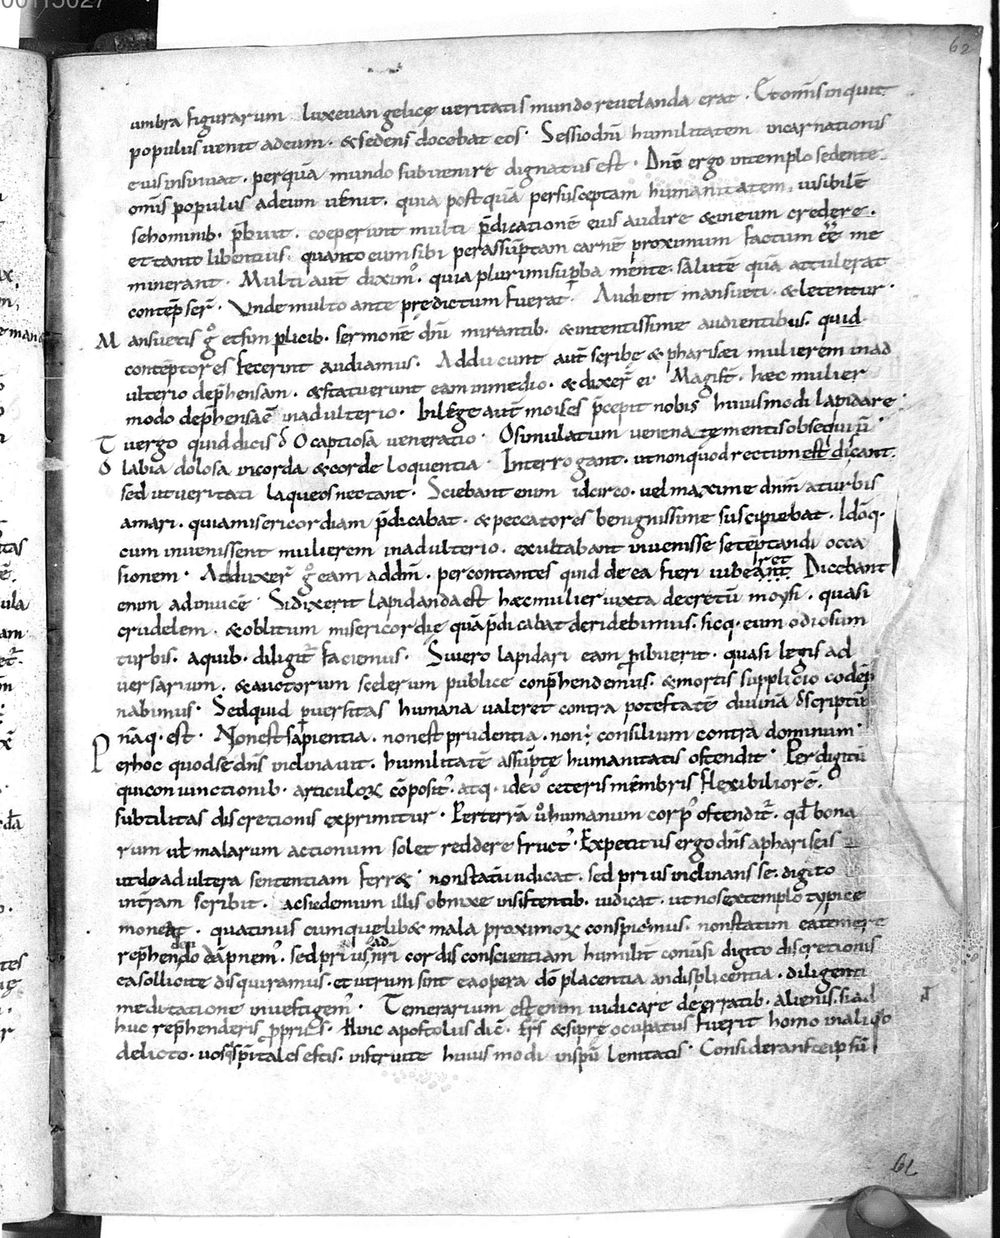 00115027
62
umbra figurarum lux euangelicę ueritatis mundo reuelanda erat. Et om̄s inquit
populus uenit adeum. & sedens docebat eos. Sessio dn̄i humilitatem incarnationis
eius insinuat. per quā mundo subuenire dignatus est. Dn̄o ergo in templo sedente
om̄is populus adeum uenit. quia post quā per susceptam humanitatem, uisibilē
se hominib. p̄buit. coeperunt multi p̄dicationē eius audire & in eum credere.
et tanto libentius. quanto eum sibi per assūptam carnē proximum factum ēē me
minerant. Multi aut̄ diximꝰ. quia plurimi sup̱ba mente. salutē quā attulerat
contēpser̄. Vnde multo ante predictum fuerat. Audient mansueti. & letentur.
Mansuetis g̊ et simplicib. sermonē dn̄i mirantib. & intentissime audientibus. quid
contēptores fecerint audiamus. Adducunt aut̄ scribe & pharisei mulierem in ad
ulterio dep̄hensam. & statuerunt eam in medio. & dixer̄ ei. Magist̄. hęc mulier
modo dep̄hensa ē in adulterio. In lege aut̄ moises p̄cepit nobis huius modi lapidare.
Tu ergo quid dicis? O captiosa ueneratio. O simulatum uenena te mentis obsequiū.
O labia dolosa in corda & corde loquentia. Interrogant. ut non quod rectum est dicant.
sed ut ueritati laqueos nectant. Sciebant enim idcirco. uel maxime dnm̄ a turbis
amari. quia misericordiam p̄dicabat. & peccatores benignissime suscipiebat. Idōq.
cum inuenissent mulierem in adulterio. exultabant inuenisse se tēptandi occa
sionem. Adduxer̄ g̊ eam ad dn̄m. percontantes quid de ea fieri iuberet. Dicebant
enim ad inuicē. Si dixerit lapidanda est hęc mulier iuxta decretū moysi. quasi
crudelem. & oblitum misericordie quā p̄dicabat deridebimus. sicq. eum odiosum
turbis. a quib. diligit̄ faciemus. Si uero lapidari eam p̱ibuerit. quasi legis ad
uersarium. & auctorum scelerum publice conp̄hendemus. & mortis supplicio condēp
nabimus. Sed quid puersitas humana ualeret contra potestatē diuinā? Scriptū
nāq. est. Non est sapientia. non est prudentia. non ÷ consilium contra dominum.
Per hoc quod se dn̄s inclinauit. humilitatē assūptę humanitatis ostendit. Per digitū
qui coniunctionib. articuloꝝ cōpositꝰ. atq. ideo cęteris mēmbris flexibilior ē.
subtilitas discretionis exprimitur. Per terrā ů humanum corpꝰ ostendit̄. qđ bona
rum uł malarum actionum solet reddere fructꝰ. Expetitus ergo dn̄s a phariseis
ut de adultera sententiam ferr&. non statū iudicat. sed prius inclinans se. digito
in terram scribit. ac sic demum illis obnixe insistentib. iudicat. ut nos exemplo typice
moneat. quatinus cum quelib& mala proximoꝝ conspicimus. non statim ea temere
rep̄hendendo dāpnemꝰ. sed prius ad nr̄i cordis conscientiam humilit̄ conūsi digito discretionis
ea sollicite disquiramus. et utrum sint ea opera dō placentia an displicentia. diligenti
meditatione inuestigemꝰ. Temerarium est enim iudicare de erratib. alienis. si ad
huc rep̄henderis p̱priis. Hinc apostolus dic̄. Fr̄s & si preocupatus fuerit homo in aliquo
delicto. uos q sp̄itales estis. instruite huius modi in sp̄u lenitatis. Considerans te ipsū
62